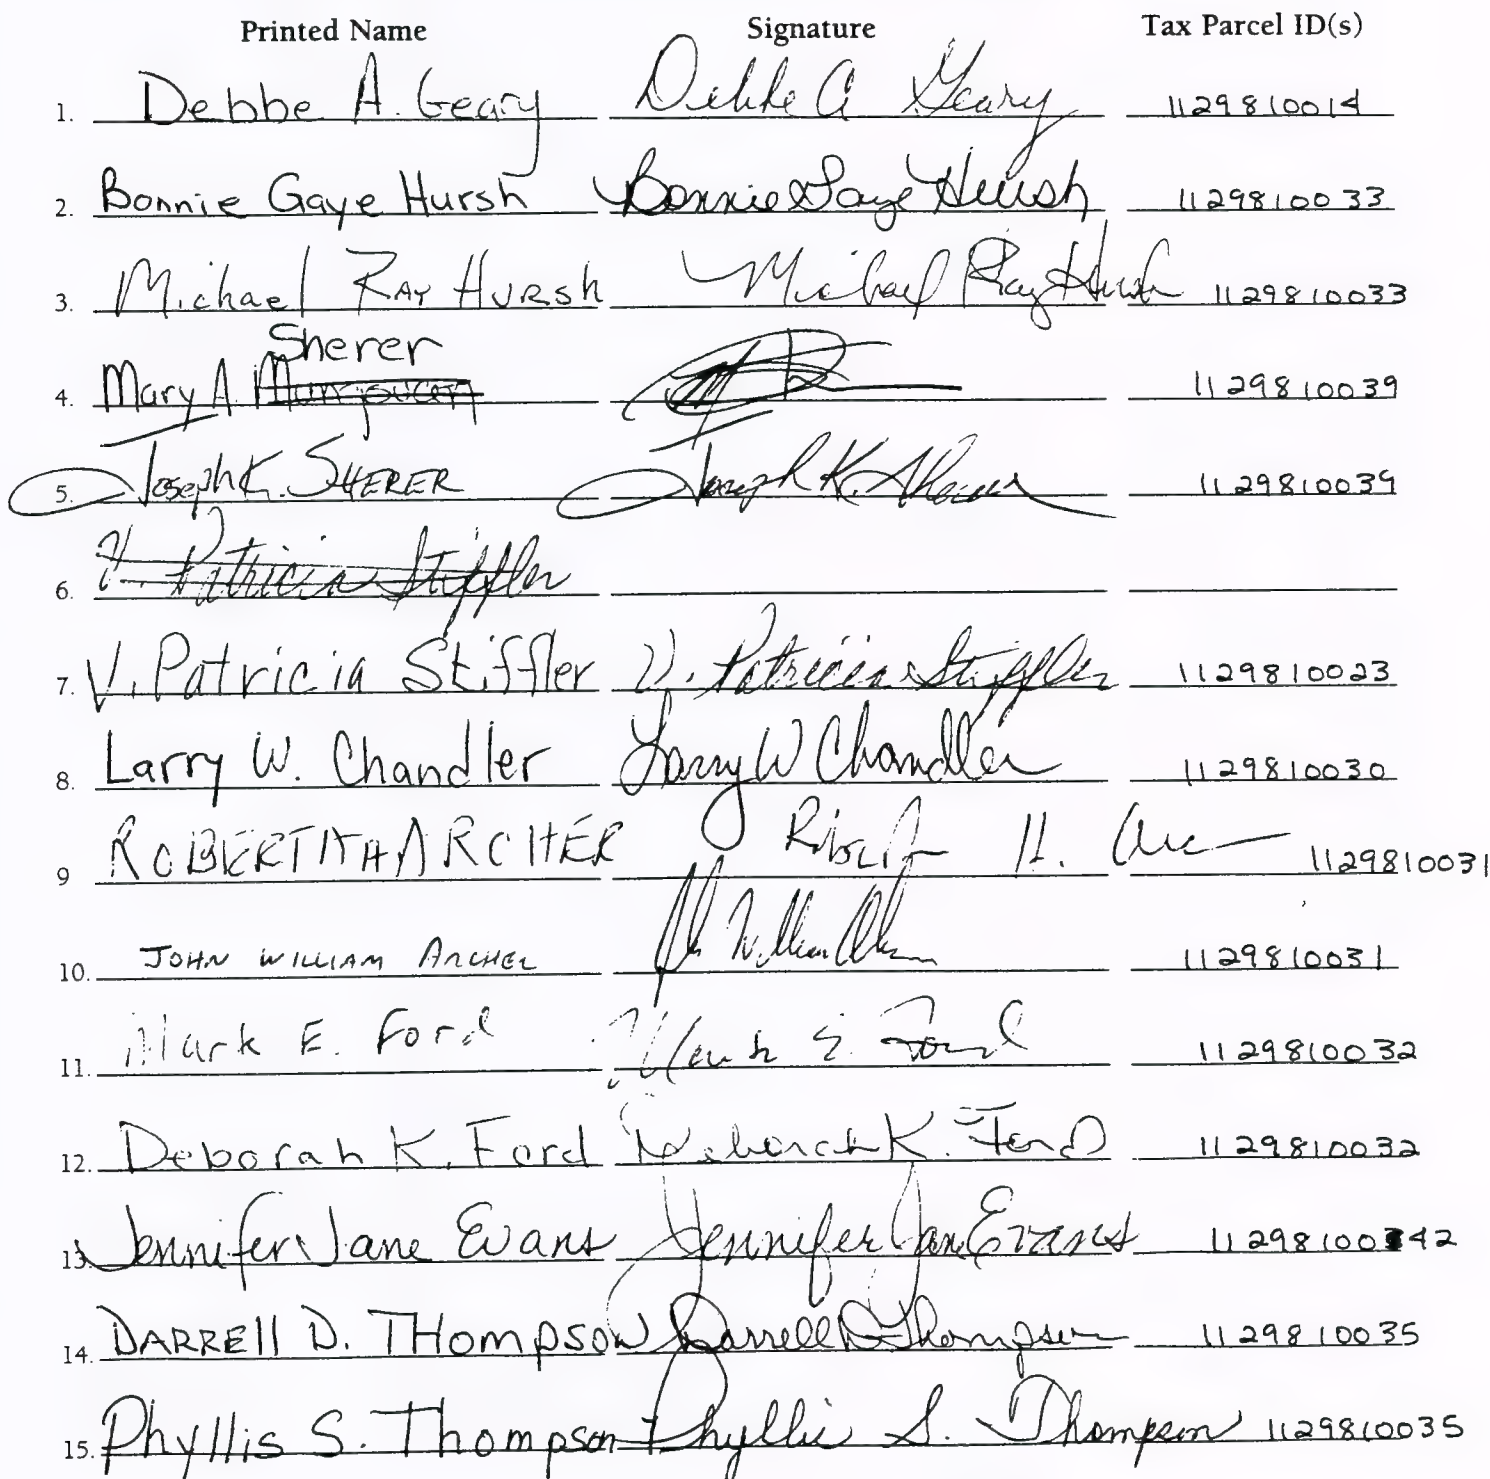 Printed Name Signature Tax Parcel ID(s)
1. Debbe A. Geary Debbe A Geary 1129810014
2. Bonnie Gaye Hursh Bonnie Gaye Hursh 1129810033
3. Michael Ray Hursh Michael Ray Hursh 1129810033
Sherer
4. Mary A. 1129810039
5. Joseph K. SHERER Joseph K. Sherer 1129810039
6. V. Patricia Stiffler
7. V. Patricia Stiffler V. Patricia Stiffler 1129810023
8. Larry W. Chandler Larry W Chandler 1129810030
9 ROBERTA H ARCHER H. 1129810031
10. JOHN WILLIAM ARCHER John William 1129810031
11. Mark E. Ford Mark E. Ford 1129810032
12. Deborah K. Ford Deborah K. Ford 1129810032
13. Jennifer Jane Evans Jennifer Jane Evans 1129810042
14. DARRELL D. THOMPSON Darrell D Thompson 1129810035
15. Phyllis S. Thompson Phyllis S. Thompson 1129810035